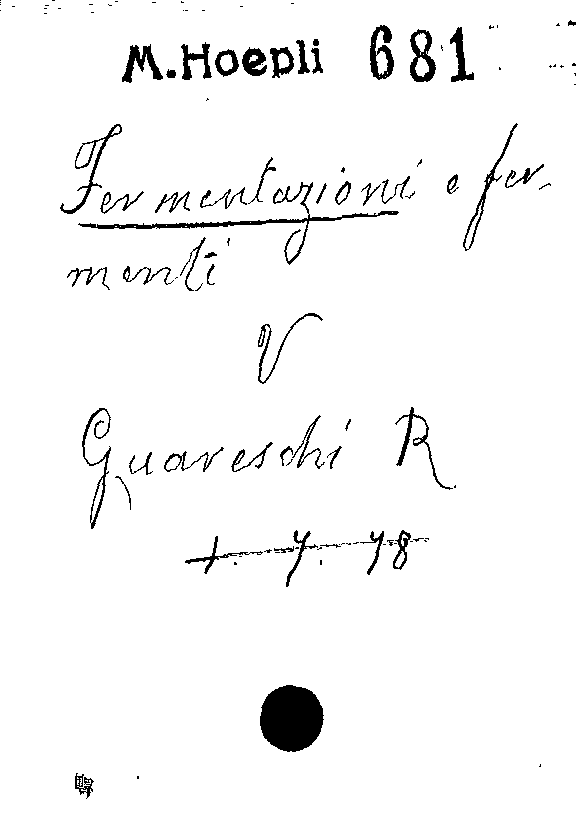 M. Hoepli 681
Fermentazioni e fer-
menti
V
Guareschi R